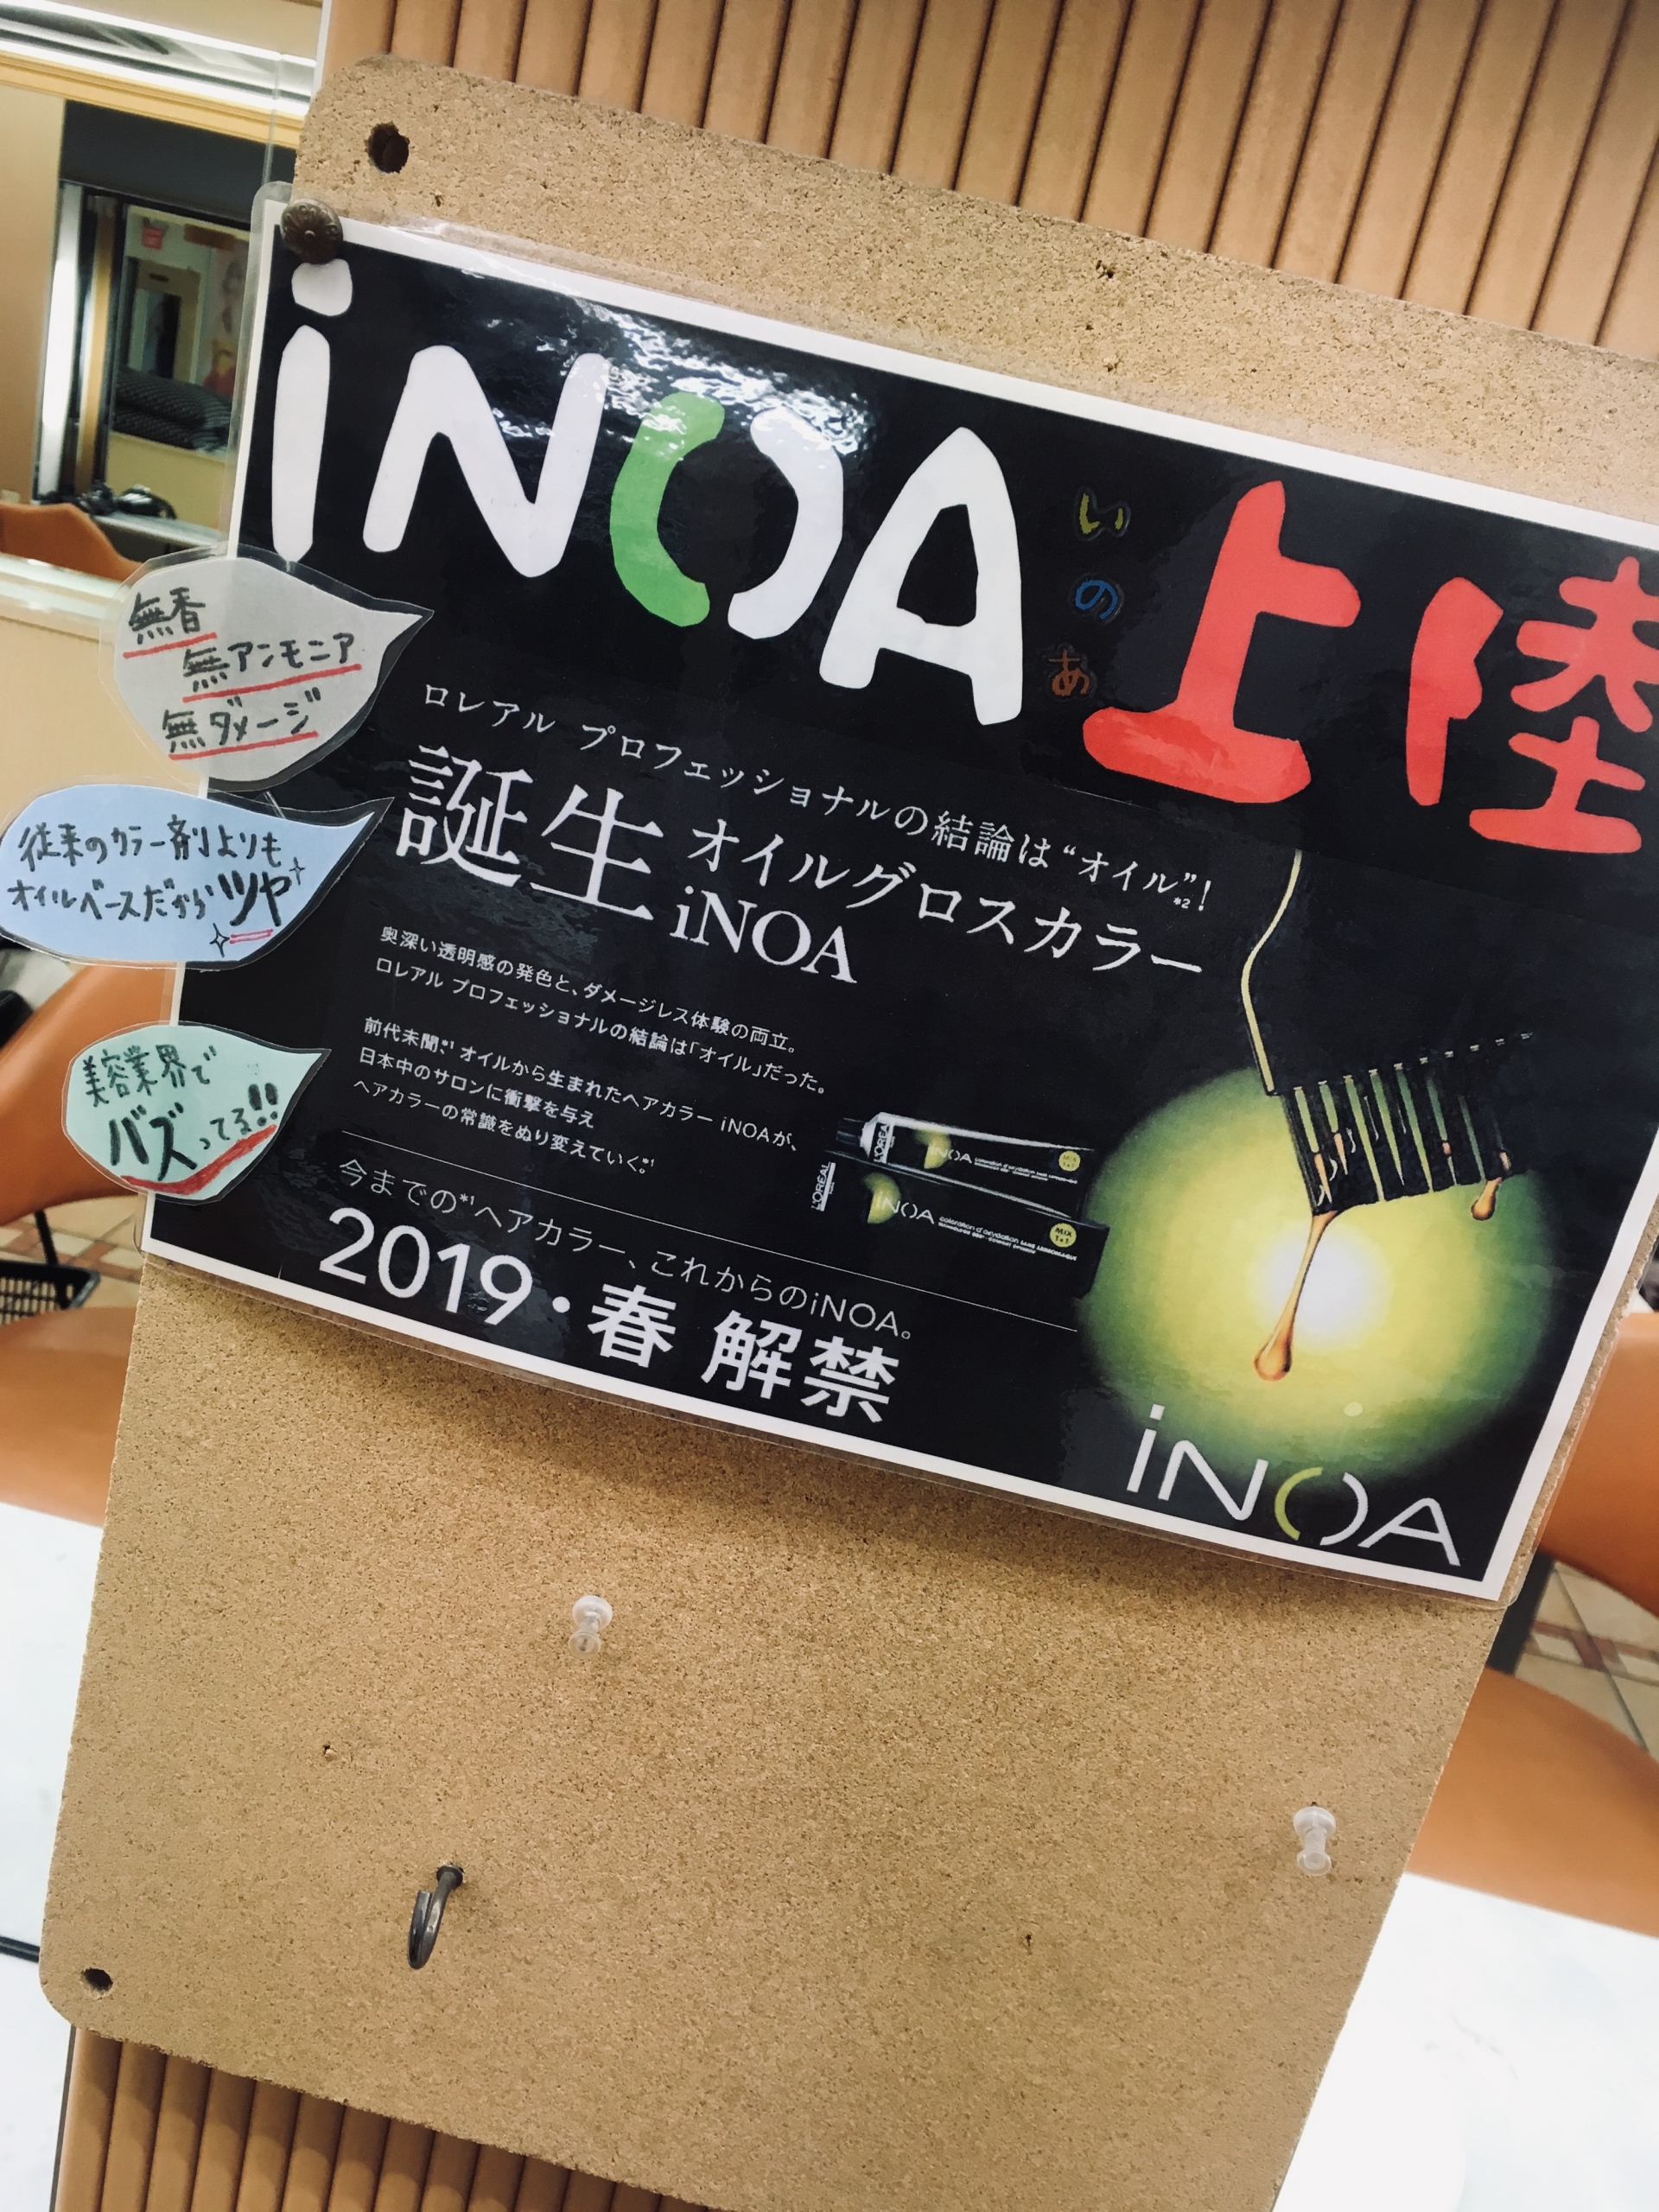 iNOA
いのあ
上陸
無香
無アンモニア
無ダメージ
従来のカラー剤よりも
オイルベースだからツヤ
美容業界で
バズってる!!
ロレアル プロフェッショナルの結論は“オイル”*2!
誕生 オイルグロスカラー
iNOA
奥深い透明感の発色と、ダメージレス体験の両立。
ロレアル プロフェッショナルの結論は「オイル」だった。
前代未聞*1、オイルから生まれたヘアカラー iNOAが、
日本中のサロンに衝撃を与え
ヘアカラーの常識をぬり変えていく*1。
今までの*1ヘアカラー、これからのiNOA。
2019・春 解禁
L'ORÉAL
iNOA
MIX
1+1
L'ORÉAL
iNOA
MIX
1+1
iNOA